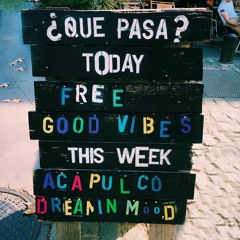 ¿QUE PASA?
TODAY
FREE
GOOD VIBES
THIS WEEK
ACAPULCO
DREAMIN MOOD